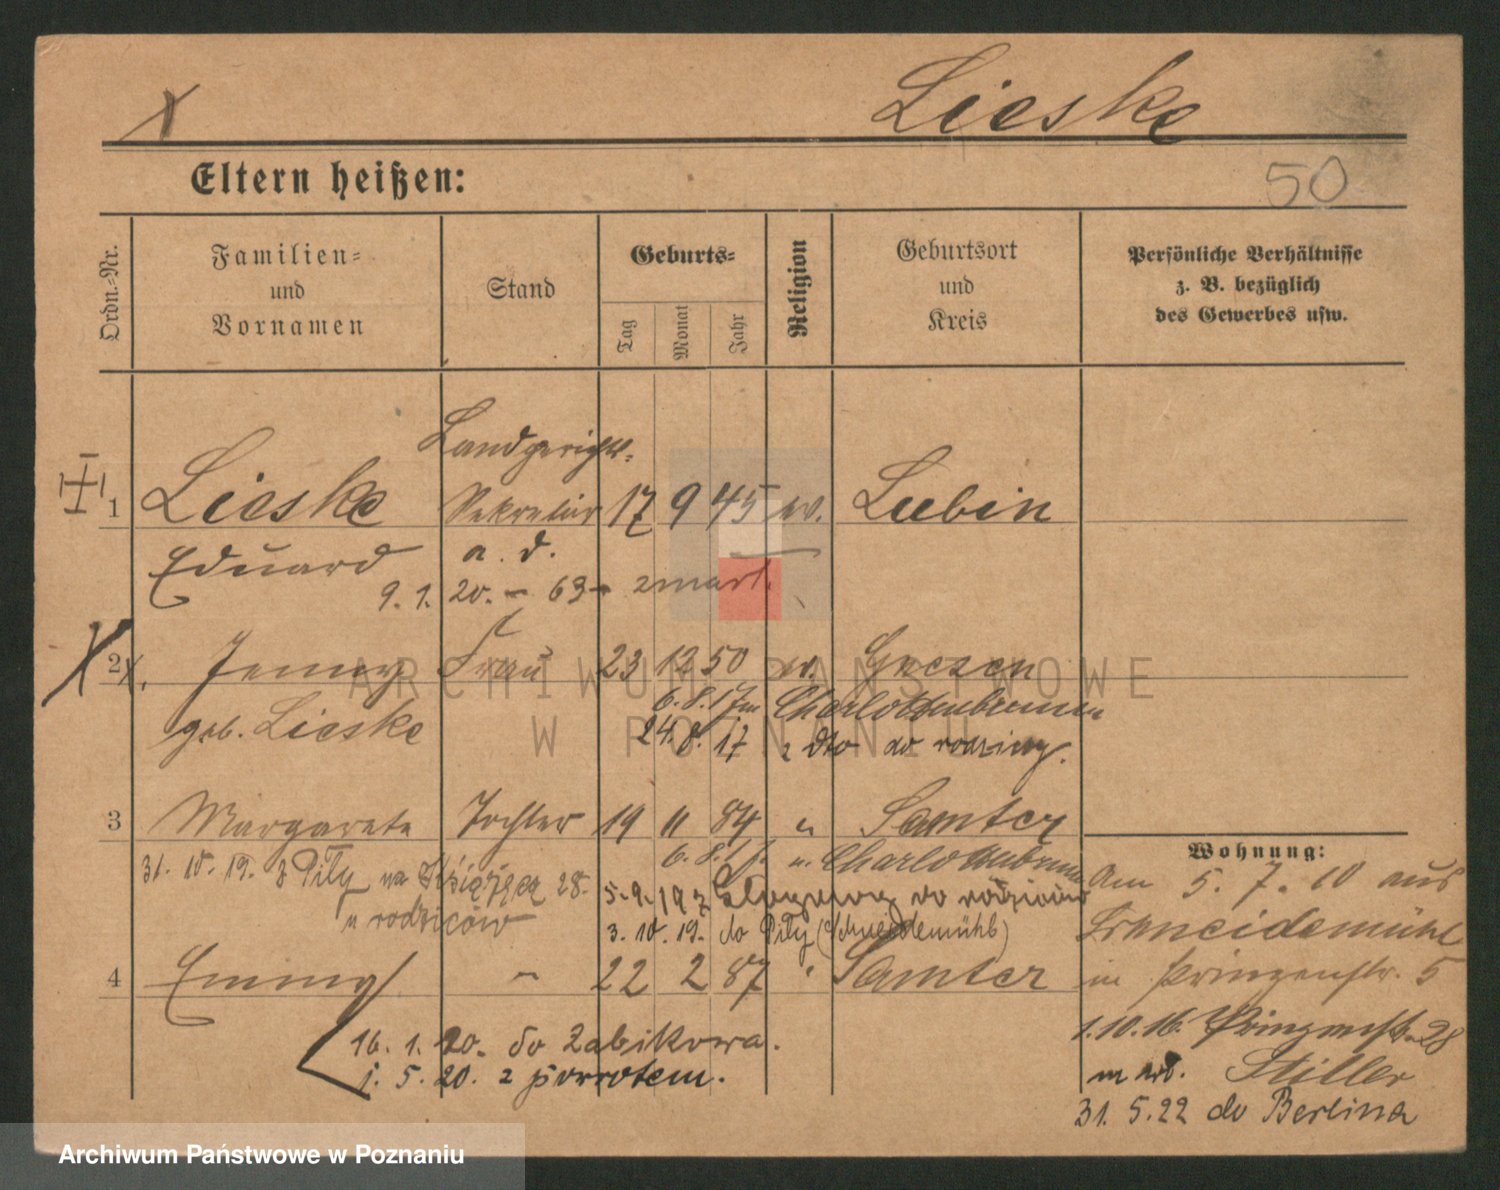 Lieske
Eltern heißen:
50
Ordn.-Nr.
Familien-
und
Vornamen
Stand
Geburts-
Tag
Monat
Jahr
Religion
Geburtsort
und
Kreis
Persönliche Verhältnisse
z. B. bezüglich
des Gewerbes usw.
Landgerichts-
1 Lieske Sekretär 17 9 45 ev. Lubin
Eduard a. D.
9. 1. 20. - 63 - zmarł.
2 Jenny Frau 23 12 50 ev. Gnesen
6. 8. 17 Charlottenbrunn
geb. Lieske 24. 8. 17 z dto do rodziny.
3 Margarete Tochter 19 11 84 " Samter
6. 8. 17 Charlottenbrunn
31. 10. 19. z Piły na Książęcą 28.
u rodziców
5. 9. 17 z do rodziców
3. 10. 19. do Piły (Schneidemühl)
4 Emmy " 22 2 87 " Samter
16. 1. 20. do Żabikowa.
1. 5. 20. z powrotem.
Wohnung:
Am 5. 7. 10 aus
Schneidemühl
in Prinzenstr. 5
1. 10. 16. Prinzenstr. 28
Stiller
31. 5. 22 do Berlina
ARCHIWUM PAŃSTWOWE
W POZNANIU
Archiwum Państwowe w Poznaniu